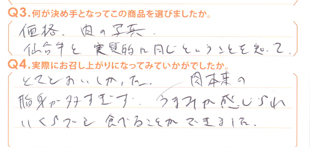 Q3.何が決め手となってこの商品を選びましたか。
価格、肉の写真、
仙台牛と実質的に同じということを知って。
Q4.実際にお召し上がりになってみていかがでしたか。
とてもおいしかった。 肉本来の
脂身が甘すぎず、うまみが感じられ
いくらでも食べることができました。